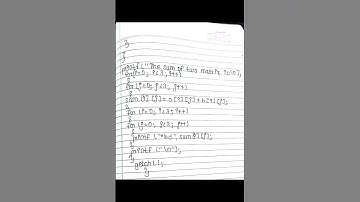 }
}
printf ("The sum of two matrix is:\n");
for (i=0; i<3; i++)
{
for (j=0; j<3; j++)
{
sum [i] [j] = a[i][j] + b[i][j];
}
}
for (i=0; i<3; i++)
{
for (j=0; j<3; j++)
{
printf ("%d", sum[i][j]);
}
printf ("\n");
}
getch ();
}